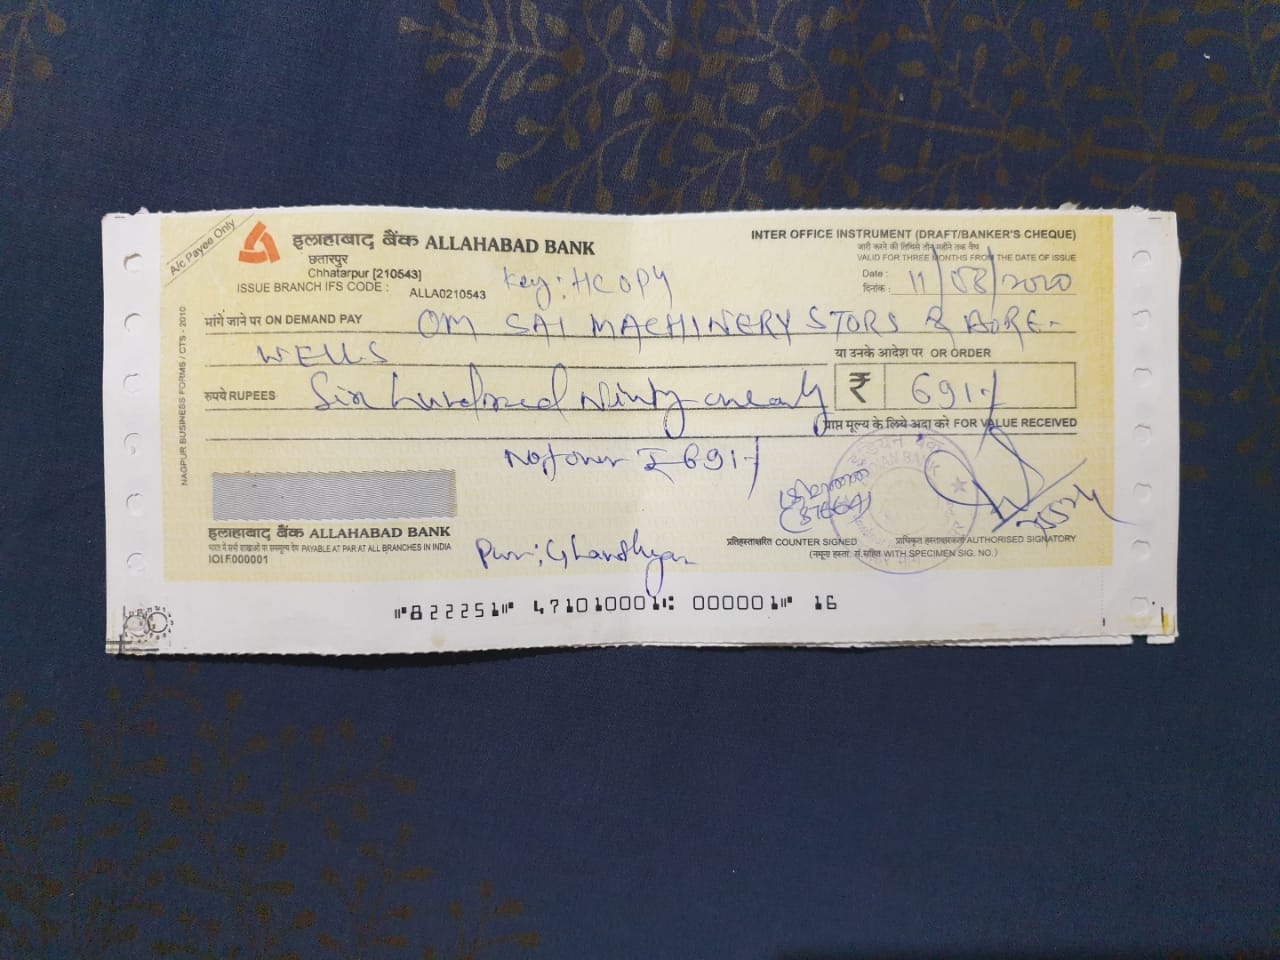 A/c Payee Only
इलाहाबाद बैंक ALLAHABAD BANK
छतारपुर
Chhatarpur [210543]
ISSUE BRANCH IFS CODE : ALLA0210543
Key: HCOPY
INTER OFFICE INSTRUMENT (DRAFT/BANKER'S CHEQUE)
जारी करने की तिथिसे तीन महीने तक वैध
VALID FOR THREE MONTHS FROM THE DATE OF ISSUE
Date :
दिनांक : 11/08/2020
मांगे जाने पर ON DEMAND PAY OM SAI MACHINERY STORS & BORE-
WELLS
या उनके आदेश पर OR ORDER
रुपये RUPEES Six hundred Ninty one only ₹ 691/-
प्राप्त मूल्य के लिये अदा करे FOR VALUE RECEIVED
Not over ₹ 691/-
NAGPUR BUSINESS FORMS / CTS - 2010
इंडियन बैंक
INDIAN BANK
इलाहाबाद बैंक ALLAHABAD BANK
PAYABLE AT PAR AT ALL BRANCHES IN INDIA
IOLF000001
Pur: Ghanshyam
प्रतिहस्ताक्षरित COUNTER SIGNED
प्राधिकृत हस्ताक्षरकर्ता AUTHORISED SIGNATORY
(नमूना हस्ता. सं.सहित WITH SPECIMEN SIG. NO.)
⑈822251⑈ 471010001⑆ 000001⑈ 16